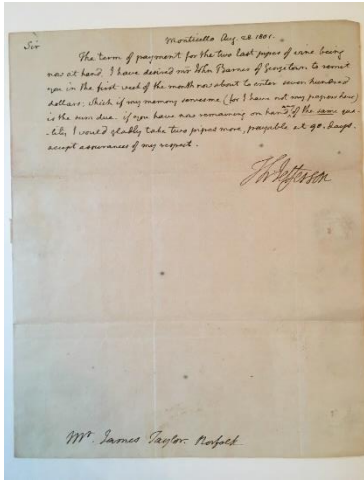 Sir Monticello Aug. 28. 1801.
The term of payment for the two last pipes of wine being
now at hand, I have desired mr John Barnes of Georgetown to remit
you in the first week of the month now about to enter seven hundred
dollars, which if my memory serves me (for I have not my papers here)
is the sum due. if you have now remaining on hand any of the same qua-
lity, I would gladly take two pipes more, payable at 90. days.
accept assurances of my respect.
Th: Jefferson
Mr. James Taylor. Norfolk